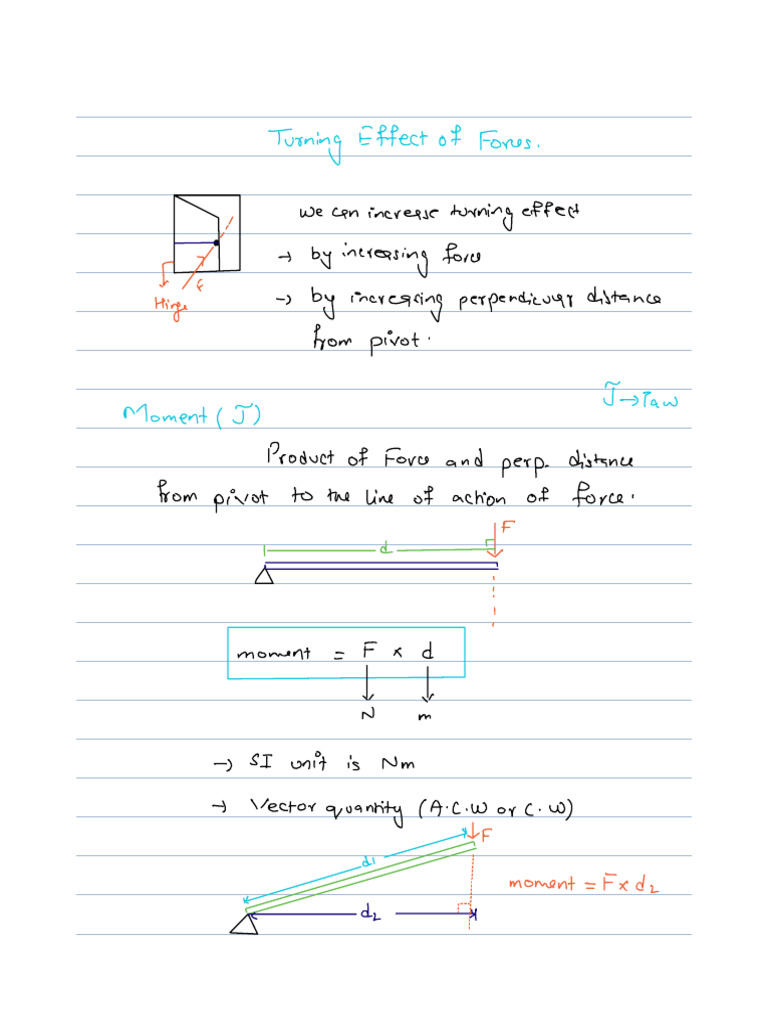 Turning Effect of Forces.
we can increase turning effect
→ by increasing force
F
Hinge
→ by increasing perpendicular distance
from pivot.
J̃ → Taw
Moment (J̃)
Product of Force and perp. distance
from pivot to the line of action of force.
F
d
moment = F × d
N m
→ SI unit is Nm
→ Vector quantity (A.C.W or C.W)
F
d1
moment = F × d2
d2